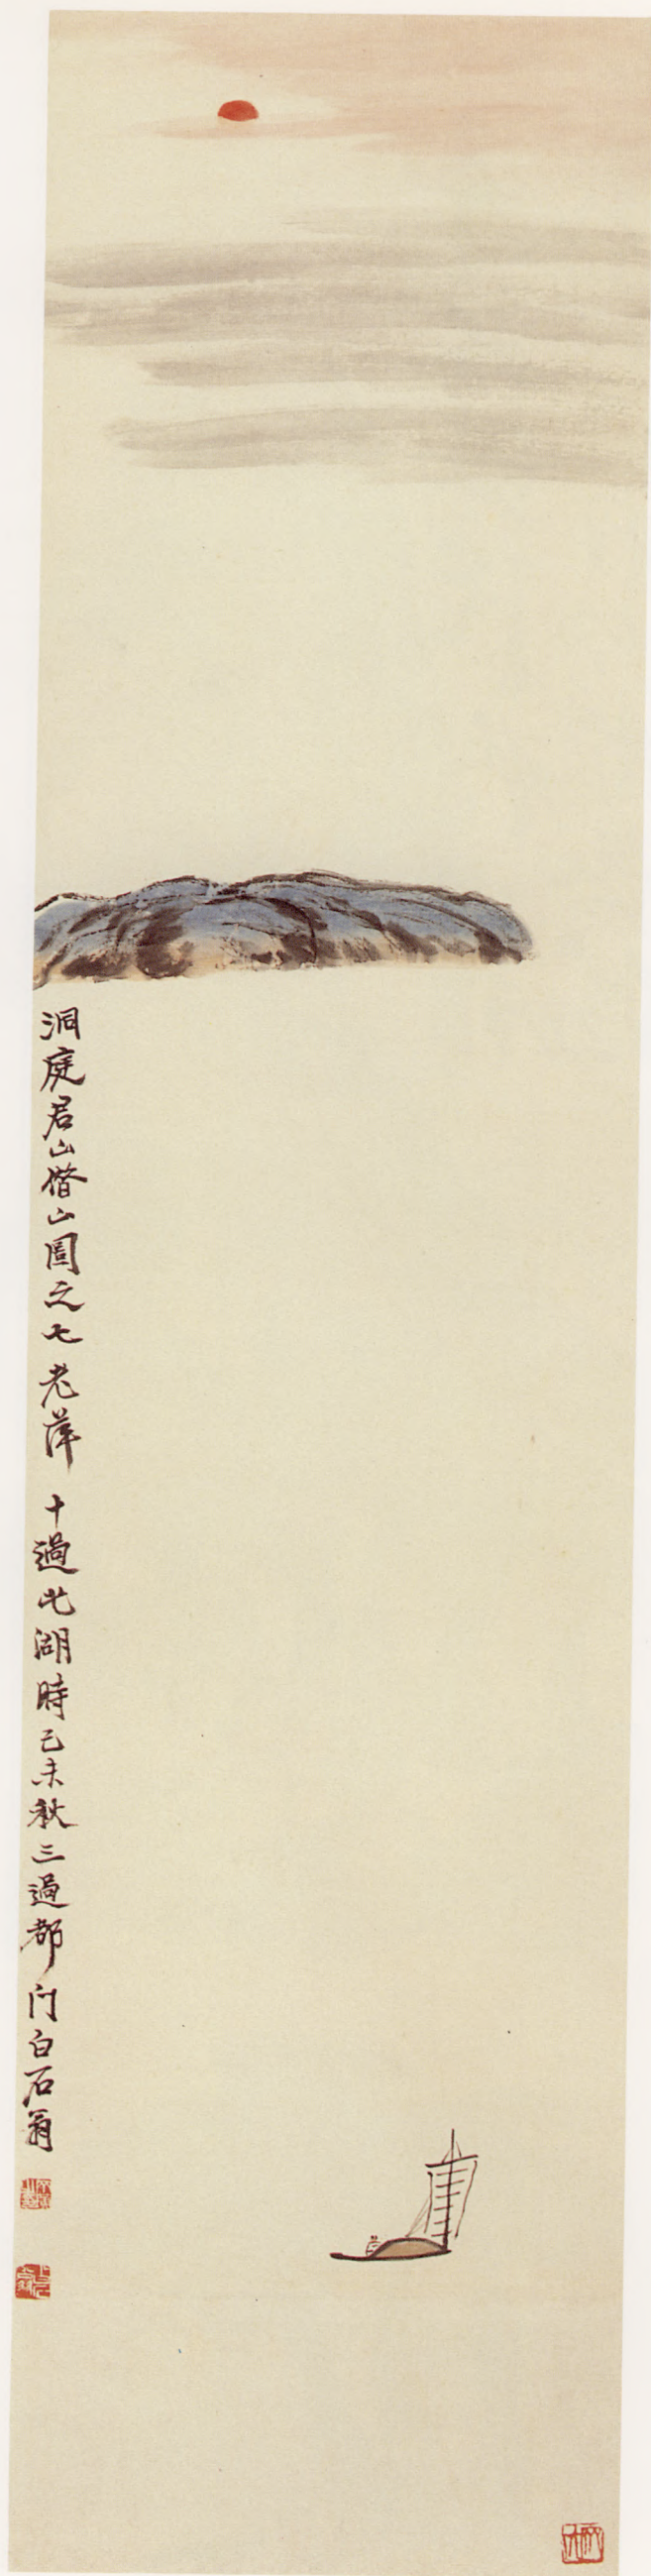 洞庭君山借山圖之七老萍 十過此湖時己未秋三過都门白石翁